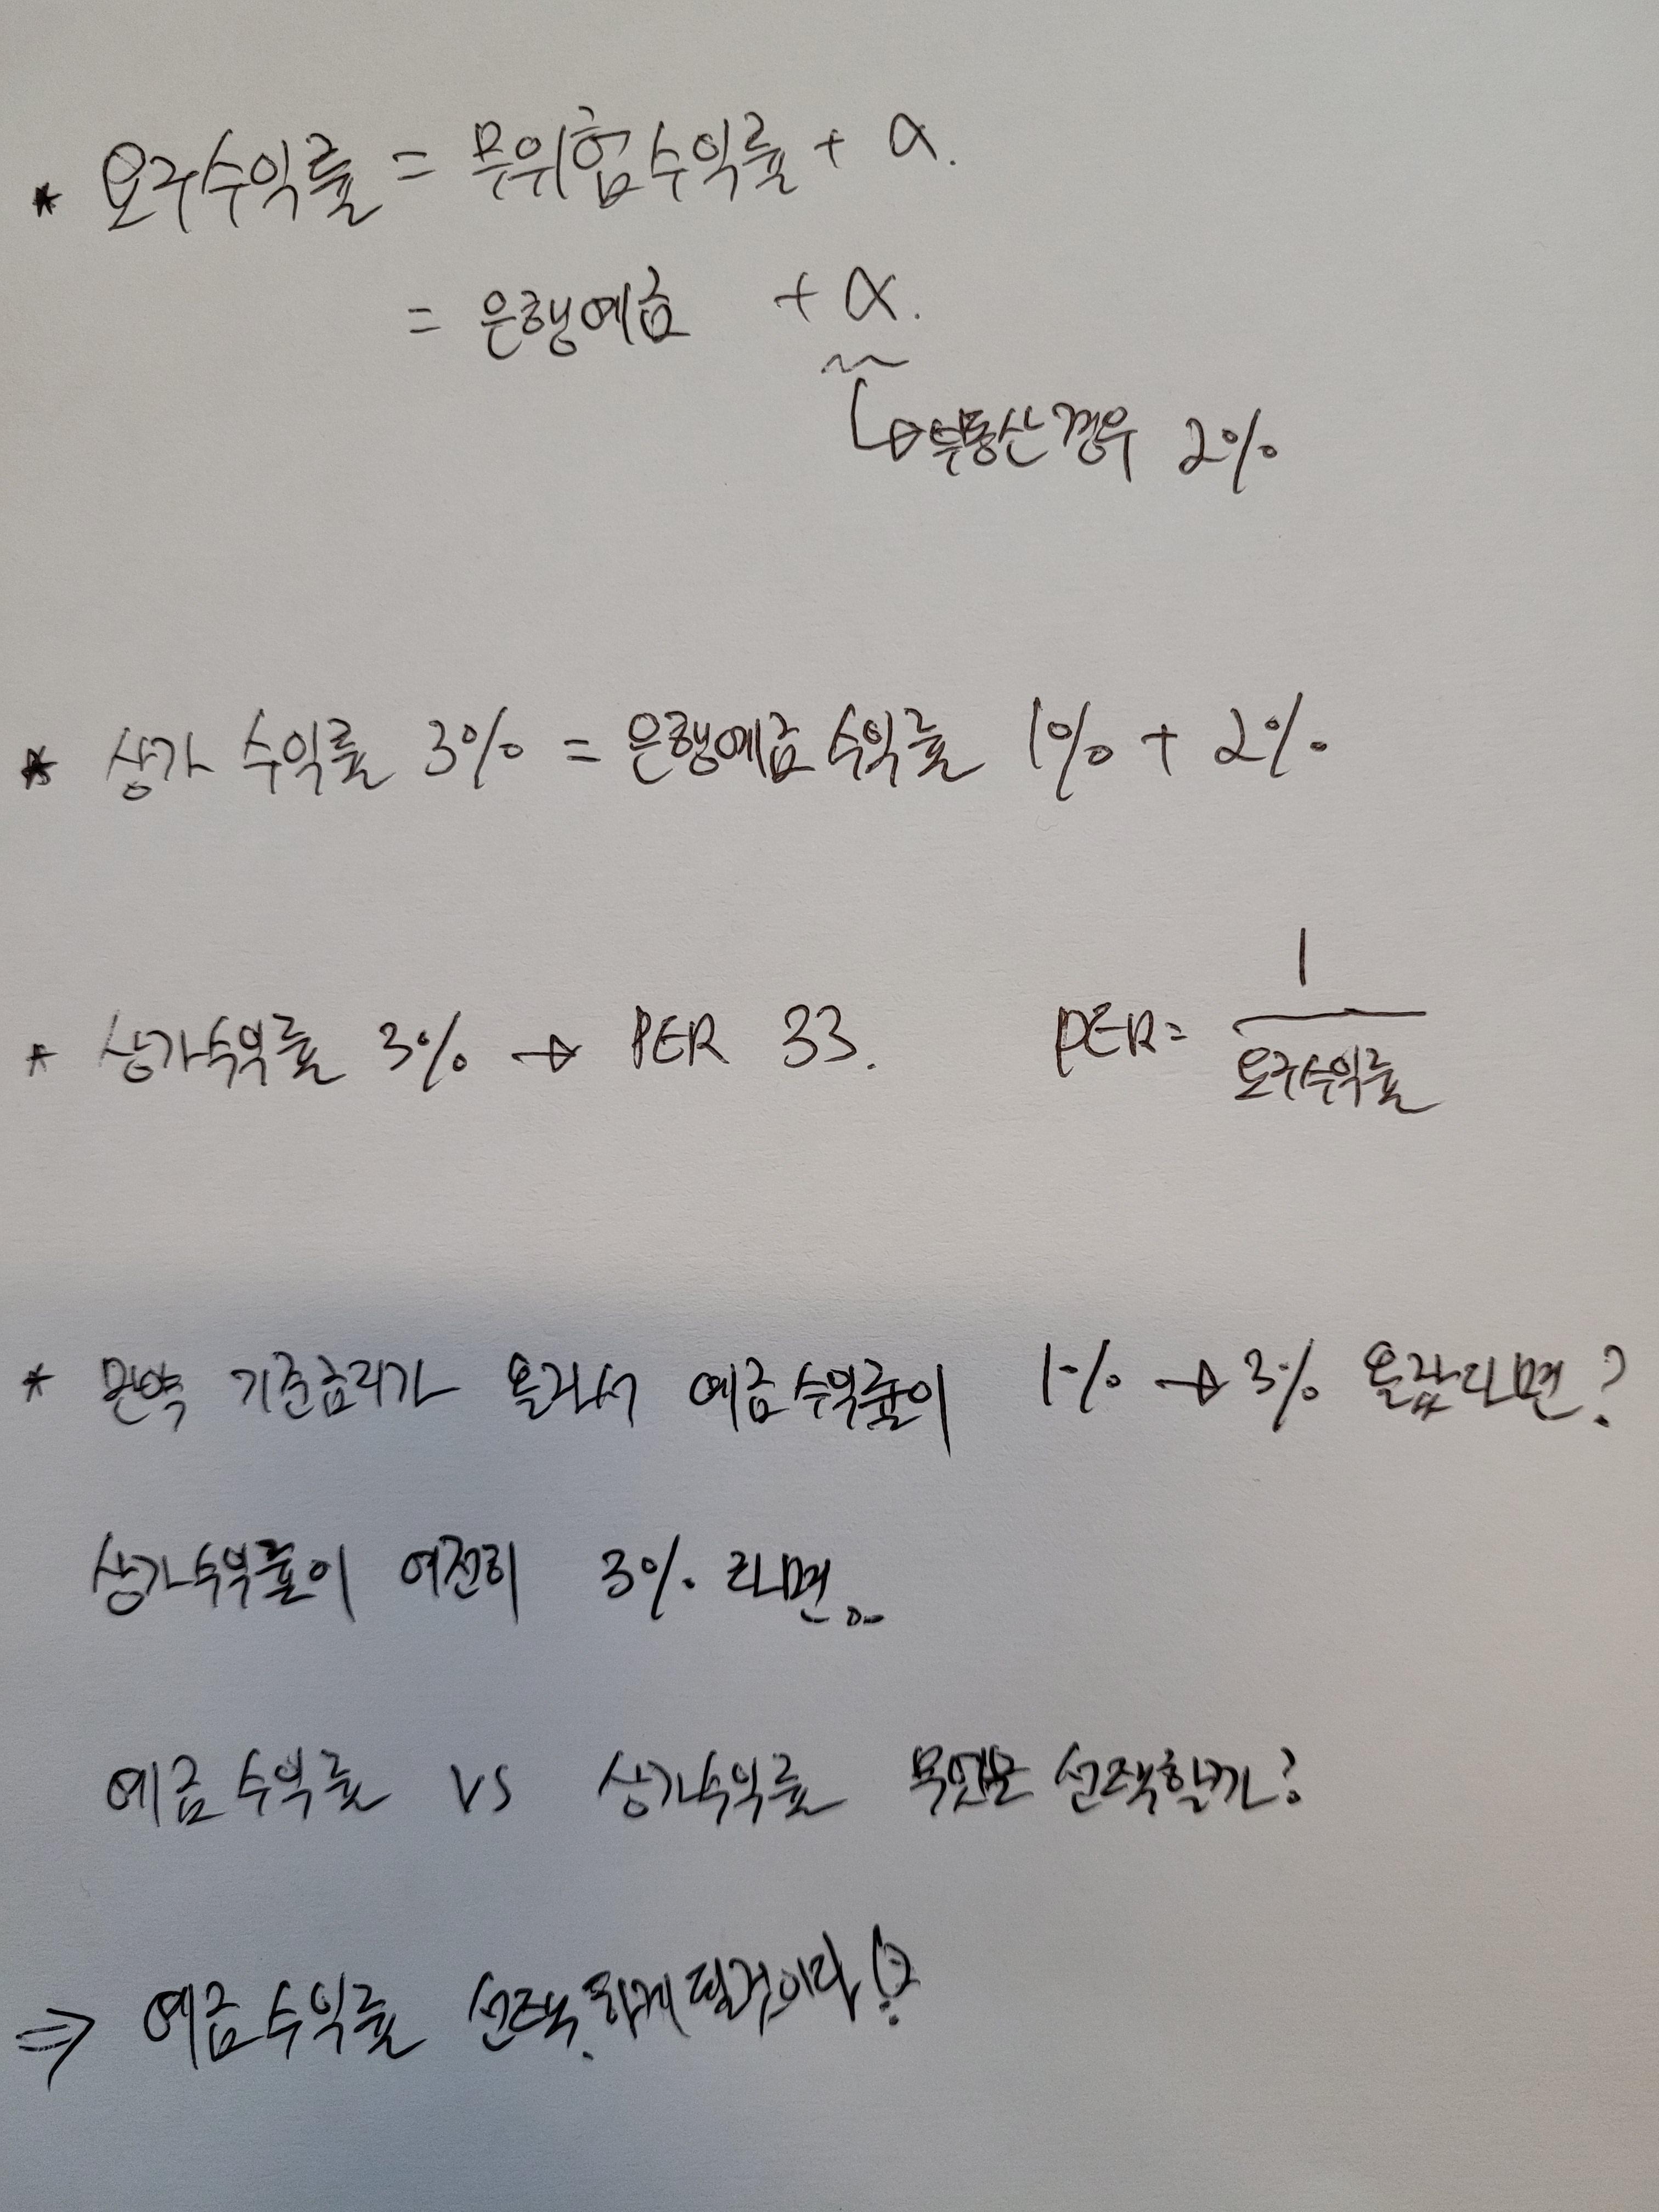 * 요구수익률 = 무위험수익률 + α.
= 은행예금 + α.
↳ 부동산경우 2%
* 상가 수익률 3% = 은행예금 수익률 1% + 2%
* 상가수익률 3% → PER 33. PER = 1 / 요구수익률
* 만약 기준금리가 올라서 예금수익률이 1% → 3% 올랐다면?
상가수익률이 여전히 3%라면..
예금수익률 vs 상가수익률 무엇을 선택할까?
⇒ 예금수익률 선택하게 될것이다!